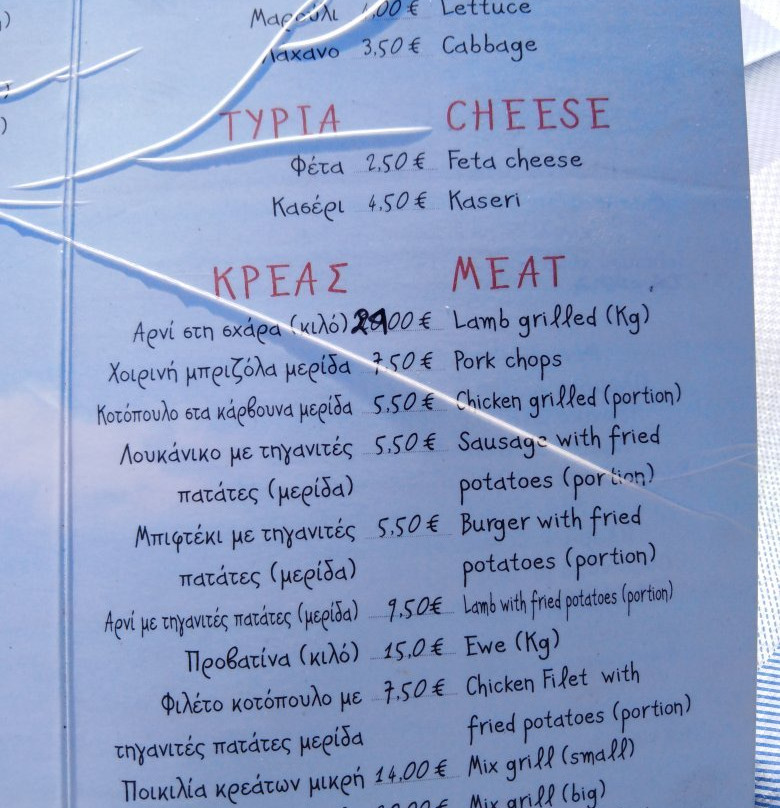 Μαρούλι ,00 € Lettuce
Λάχανο 3,50 € Cabbage
ΤΥΡΙΑ CHEESE
Φέτα 2,50 € Feta cheese
Κασέρι 4,50 € Kaseri
ΚΡΕΑΣ MEAT
Αρνί στη σχάρα (κιλό) 00 € Lamb grilled (Kg)
Χοιρινή μπριζόλα μερίδα 7,50 € Pork chops
Κοτόπουλο στα κάρβουνα μερίδα 5,50 € Chicken grilled (portion)
Λουκάνικο με τηγανιτές 5,50 € Sausage with fried
πατάτες (μερίδα) potatoes (portion)
Μπιφτέκι με τηγανιτές 5,50 € Burger with fried
πατάτες (μερίδα) potatoes (portion)
Αρνί με τηγανιτές πατάτες (μερίδα) 9,50€ Lamb with fried potatoes (portion)
Προβατίνα (κιλό) 15,0 € Ewe (Kg)
Φιλέτο κοτόπουλο με 7,50 € Chicken Filet with
τηγανιτές πατάτες μερίδα fried potatoes (portion)
Ποικιλία κρεάτων μικρή 14,00 € Mix grill (small)
Mix grill (big)